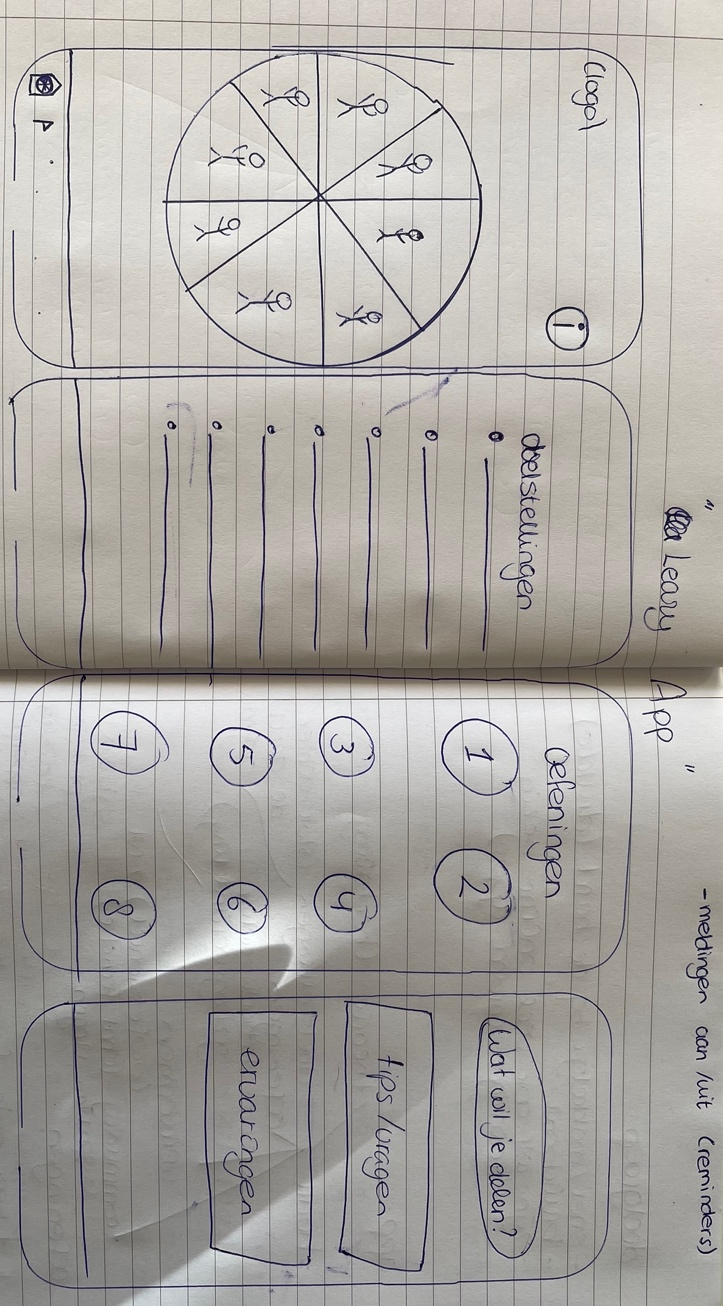 " Leary App "
- meldingen aan/uit (reminders)
(logo)
i
doelstellingen
oefeningen
1 2
3 4
5 6
7 8
Wat wil je delen?
tips/vragen
ervaringen